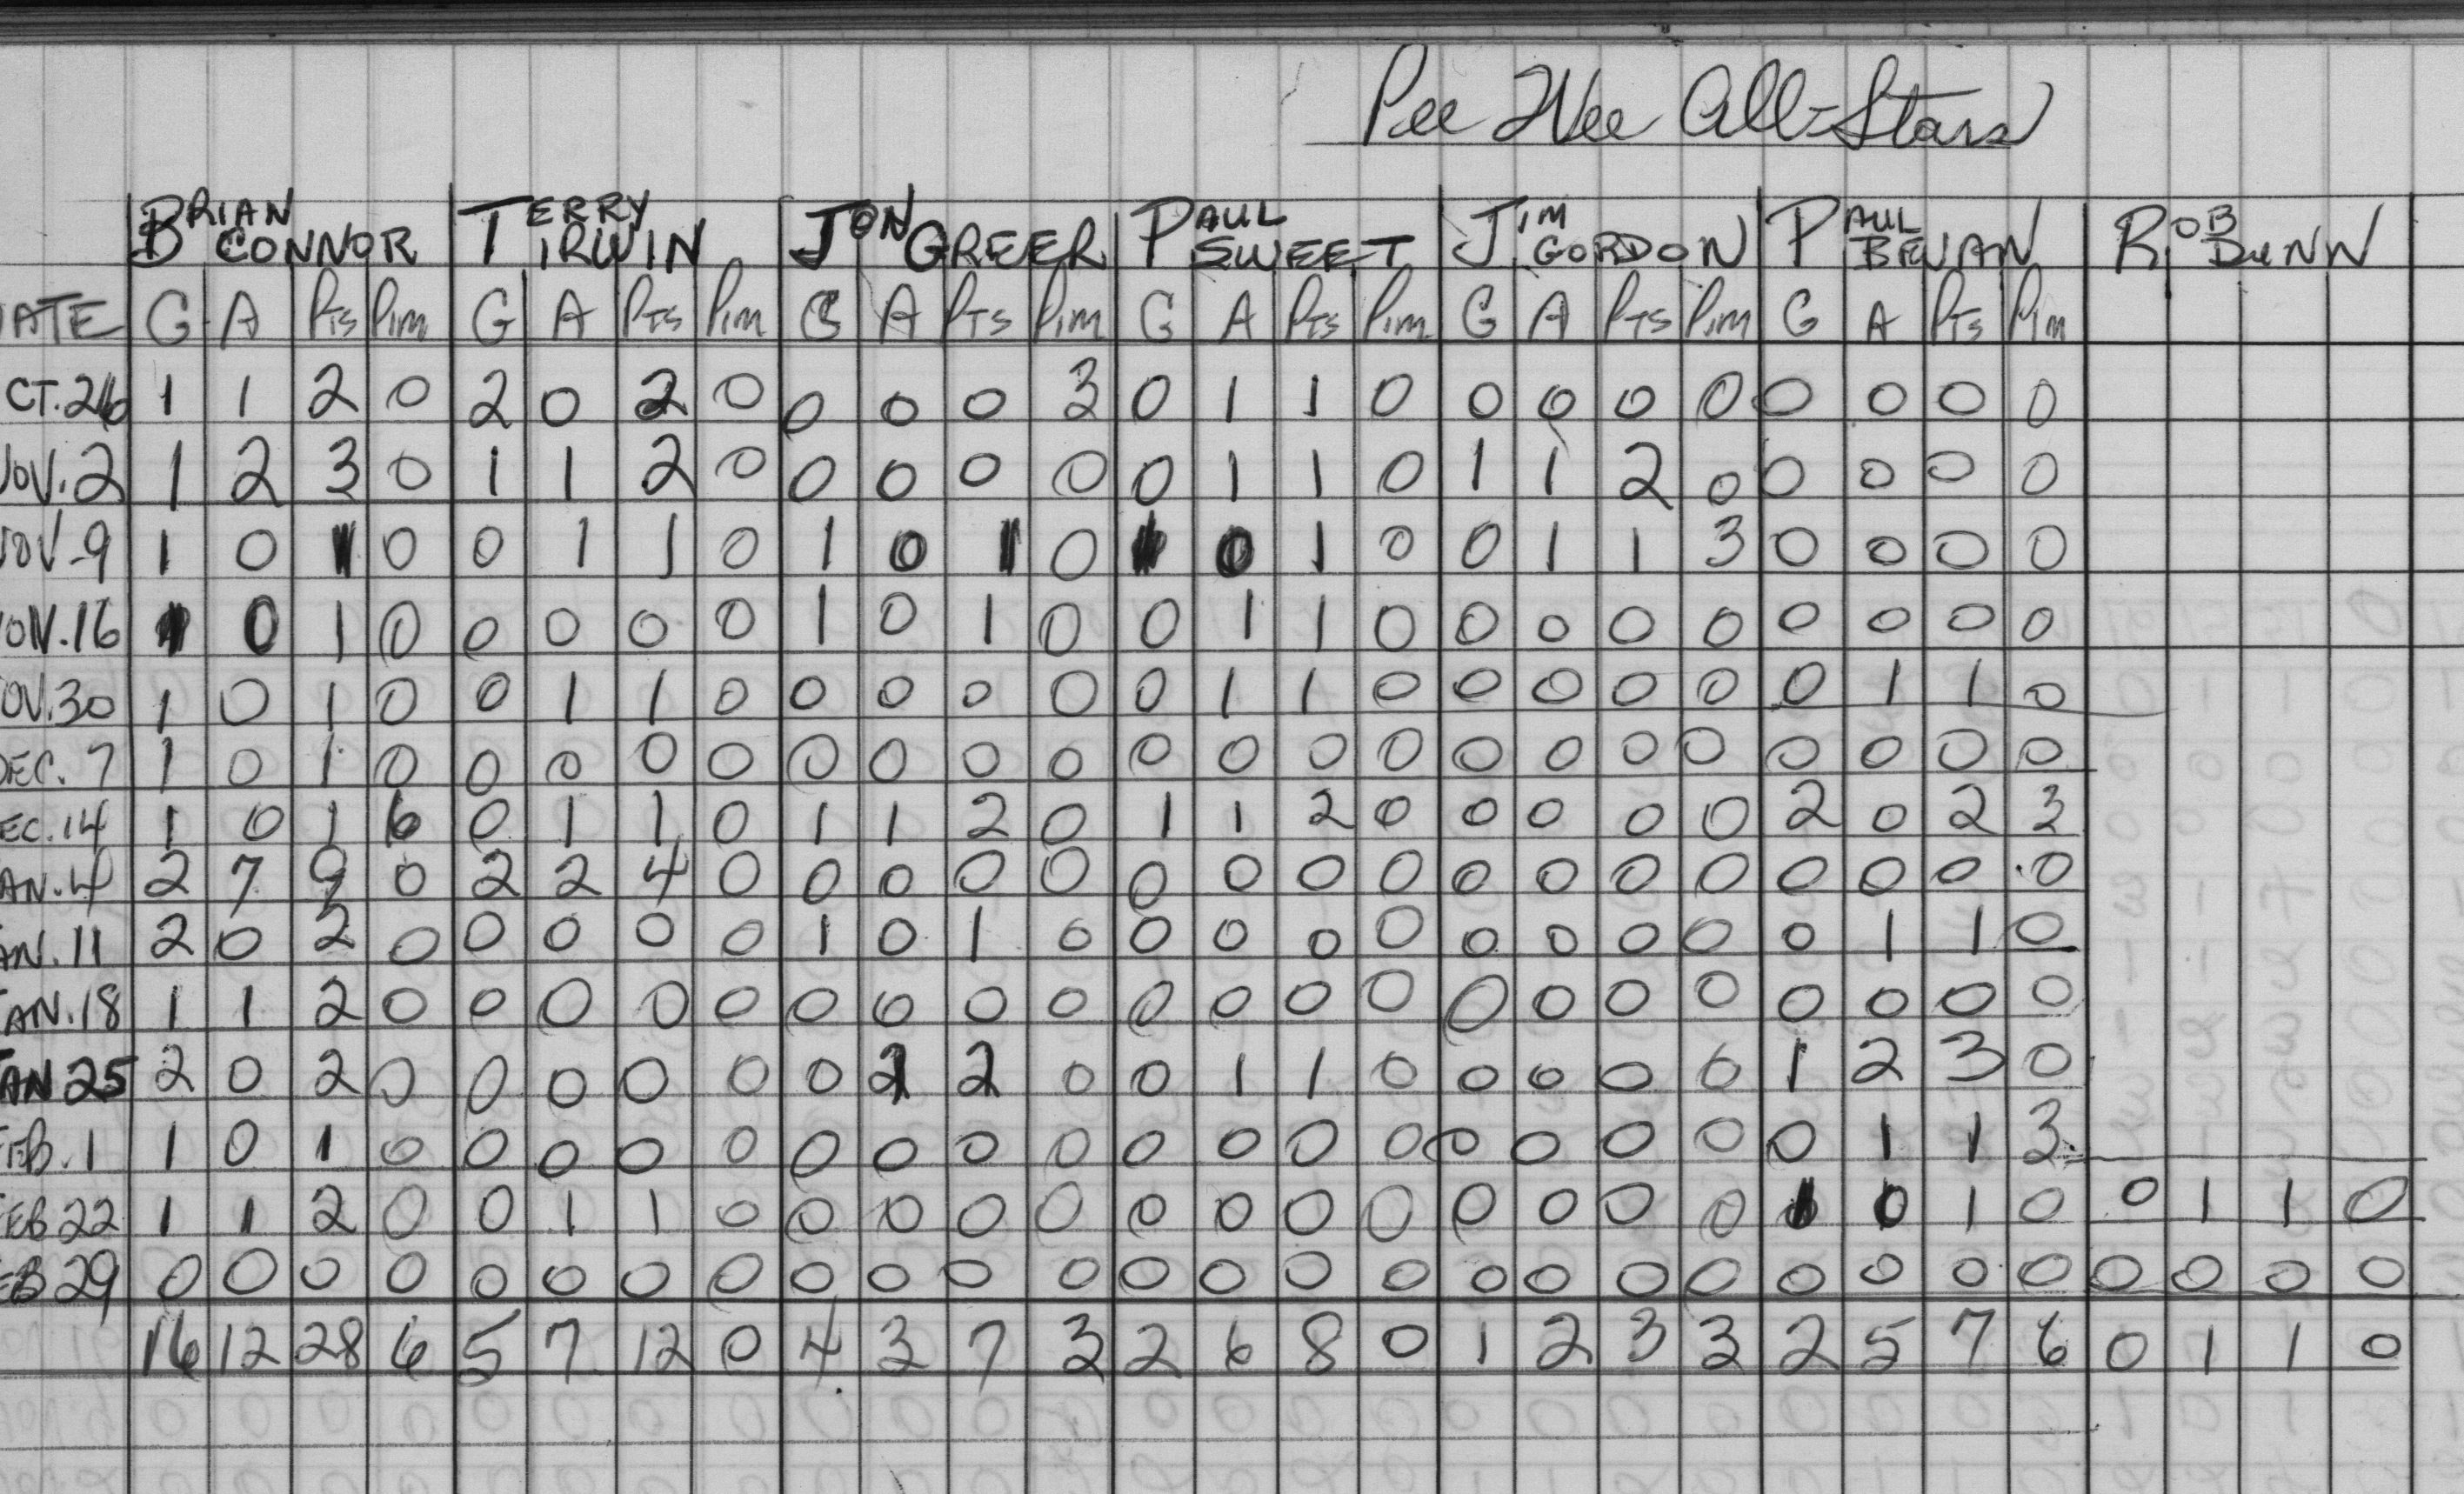 Pee Wee All-Stars
BRIAN CONNOR TERRY IRWIN JON GREER PAUL SWEET JIM GORDON PAUL BEVAN ROB DUNN
ATE G A Pts Pim G A Pts Pim G A Pts Pim G A Pts Pim G A Pts Pim G A Pts Pim
CT. 26 1 1 2 0 2 0 2 0 0 0 0 3 0 1 1 0 0 0 0 0 0 0 0 0
NOV. 2 1 2 3 0 1 1 2 0 0 0 0 0 0 1 1 0 1 1 2 0 0 0 0 0
NOV-9 1 0 1 0 0 1 1 0 1 0 1 0 1 0 1 0 0 1 1 3 0 0 0 0
OV. 16 1 0 1 0 0 0 0 0 1 0 1 0 0 1 1 0 0 0 0 0 0 0 0 0
OV. 30 1 0 1 0 0 1 1 0 0 0 0 0 0 1 1 0 0 0 0 0 0 1 1 0
DEC. 7 1 0 1 0 0 0 0 0 0 0 0 0 0 0 0 0 0 0 0 0 0 0 0 0
EC. 14 1 0 1 6 0 1 1 0 1 1 2 0 1 1 2 0 0 0 0 0 2 0 2 3
AN. 4 2 7 9 0 2 2 4 0 0 0 0 0 0 0 0 0 0 0 0 0 0 0 0 0
AN. 11 2 0 2 0 0 0 0 0 1 0 1 0 0 0 0 0 0 0 0 0 0 1 1 0
AN. 18 1 1 2 0 0 0 0 0 0 0 0 0 0 0 0 0 0 0 0 0 0 0 0 0
AN 25 2 0 2 0 0 0 0 0 0 2 2 0 0 1 1 0 0 0 0 0 1 2 3 0
FEB. 1 1 0 1 0 0 0 0 0 0 0 0 0 0 0 0 0 0 0 0 0 0 1 1 3
EB 22 1 1 2 0 0 1 1 0 0 0 0 0 0 0 0 0 0 0 0 0 1 0 1 0 0 1 1 0
EB 29 0 0 0 0 0 0 0 0 0 0 0 0 0 0 0 0 0 0 0 0 0 0 0 0 0 0 0 0
16 12 28 6 5 7 12 0 4 3 7 3 2 6 8 0 1 2 3 3 2 5 7 6 0 1 1 0